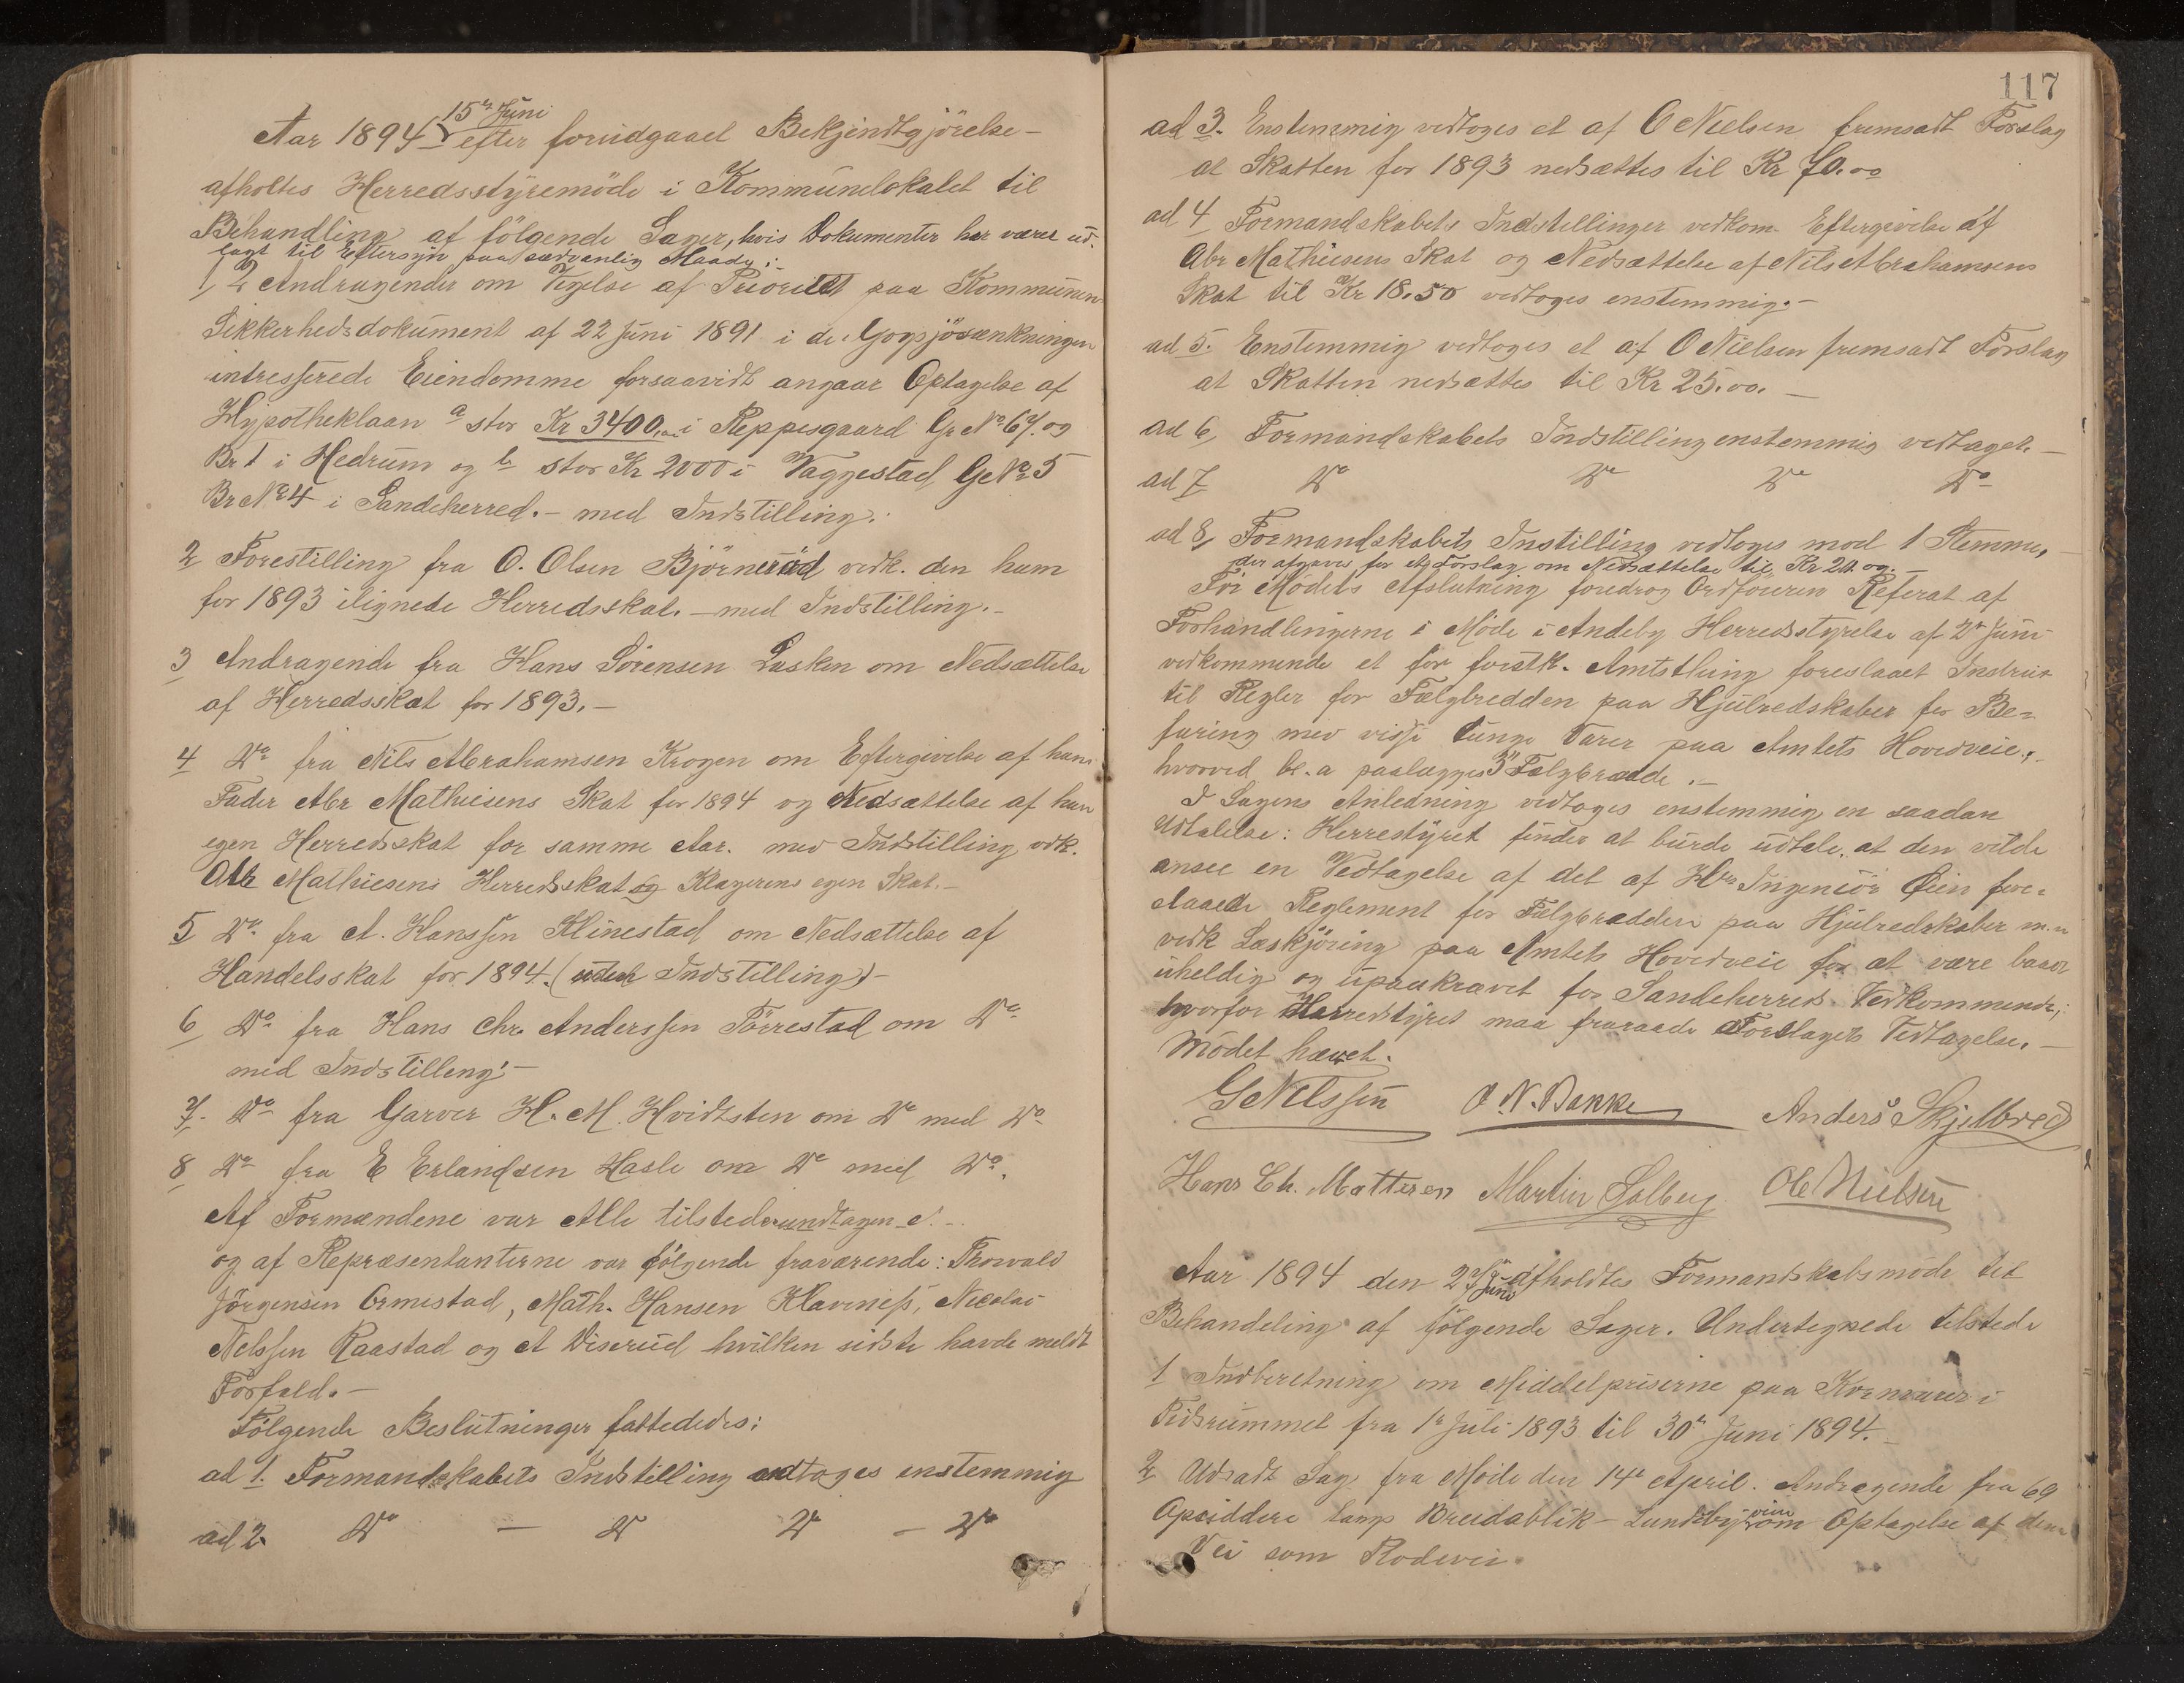 15de Juni
Aar 1894 efter forudgaael Bekjendtgjörelse -
afholtes Herredsstyremöde i Kommunelokalet til
Behandling af fölgende Sager, hvis Dokumenter har været ud-
lagt til Eftersyn paa sædvanlig Maade:
1, 2 Andragender om Vigelse af Prioritet paa Kommunens
Sikkerhedsdokument af 22 Juni 1891 i de Gogsjösænkningen
intresserede Eiendomme forsaavidt angaar Optagelse af
Hypotheklaan a stor Kr 3400,00 i Reppesgaard Gr No 67 og
Br 1 i Hedrum og b stor Kr 2000 i Vaggestad G No 5
Br No 4 i Sandeherred. - med Indstilling.
2 Forestilling fra O. Olsen Björneröd vedk. den ham
for 1893 ilignede Herredsskat. - med Indstilling. -
3 Andragende fra Hans Sörensen Lasken om Nedsættelse
af Herredsskat for 1893. -
4 Do fra Nils Abrahamsen Krogen om Eftergivelse af hans
Fader Abr Mathiesens Skat for 1894 og Nedsættelse af han
egen Herredsskat for samme Aar. med Indstilling vdk.
Abr Mathiesens Herredsskat og Klagerens egen Skat. -
5 Do fra A. Hanssen Klinestad om Nedsættelse af
Handelsskat for 1894. (uden Indstilling) -
6 Do fra Hans Chr. Anderssen Törrestad om Do
med Indstilling. -
7. Do fra Garver H. M. Hvidtsten om Do med Do
8 Do fra E Erlandsen Hasle om Do med Do.
Af Formændene var Alle tilstede undtagen
og af Repræsentanterne var fölgende fraværende: Thorvald
Jörgensen Ormestad, Math. Hansen Klavenes, Nicolai
Nelssen Raastad og A Viserud hvilken sidste havde meldt
Forfald. -
Fölgende Beslutninger fattededes:
ad 1. Formandskabets Indstilling vedtoges enstemmig
ad 2. Do - Do Do - Do
117
ad 3. Enstemmig vedtoges et af O Nielsen fremsadt Forslag
at Skatten for 1893 nedsættes til Kr 70.00
ad 4 Formandskabets Indstillinger vedkom. Eftergivelse af
Abr Mathiesens Skat og Nedsættelse af Nils Abrahamsens
Skat til Kr 18.50 vedtoges enstemmig. -
ad 5. Enstemmig vedtoges et af O Nielsen fremsadt Forslag
at Skatten nedsættes til Kr 25.00. -
ad 6, Formandskabets Indstilling enstemmig vedtaget. -
ad 7 Do Do Do Do
ad 8, Formandskabets Instilling vedtoges mod 1 Stemme, -
der afgaves for et Forslag om Nedsættelse til Kr 20.00. -
För Mödets Afslutning foredrog Ordföreren Referat af
Forhandlingerne i Möde i Andeby Herredsstyrelse af 2de Juni
vedkommende et for forestk. Amtsthing foreslaaet Instrux
til Regler for Fælgbredden paa Hjulredskaber for Be=
faring med visse tunge Varer paa Amtets Hovedveie,
hvorved bl. a paalægges 3" Fælgbrædde. -
I Sagens Anledning vedtoges enstemmig en saadan
Udtalelse: Herrestyret finder at burde udtale, at den vilde
ansee en Vedtagelse af det af Hr Ingeniör Øien fore=
slaaede Reglement for Fælgbrædden paa Hjulredskaber m.m
vedk Læskjöring paa Amtets Hovedveie for at være baade
uheldig og upaakrævet for Sandeherreds Vedkommende;
hvorfor Herredstyret maa fraraade Forslagets Vedtagelse. -
Mödet hævet.
G Nilssen O. N. Bakke Anders Skjelbred
Hans Ch. Mattesen Martin Solberg Ole Nielsen
Aar 1894 den 27de Juni afholdtes Formandskabsmöde til
Behandeling af fölgende Sager. Undertegnede tilstede
1 Indberetning om Middelpriserne paa Kornvarer i
Tidsrummet fra 1e Juli 1893 til 30te Juni 1894. -
2 Udsadt Sag fra Möde den 14de April. Andragende fra 69
Opsiddere langs Breidablik - Lundebyveien om Optagelse af denne
Vei som Rodevei.